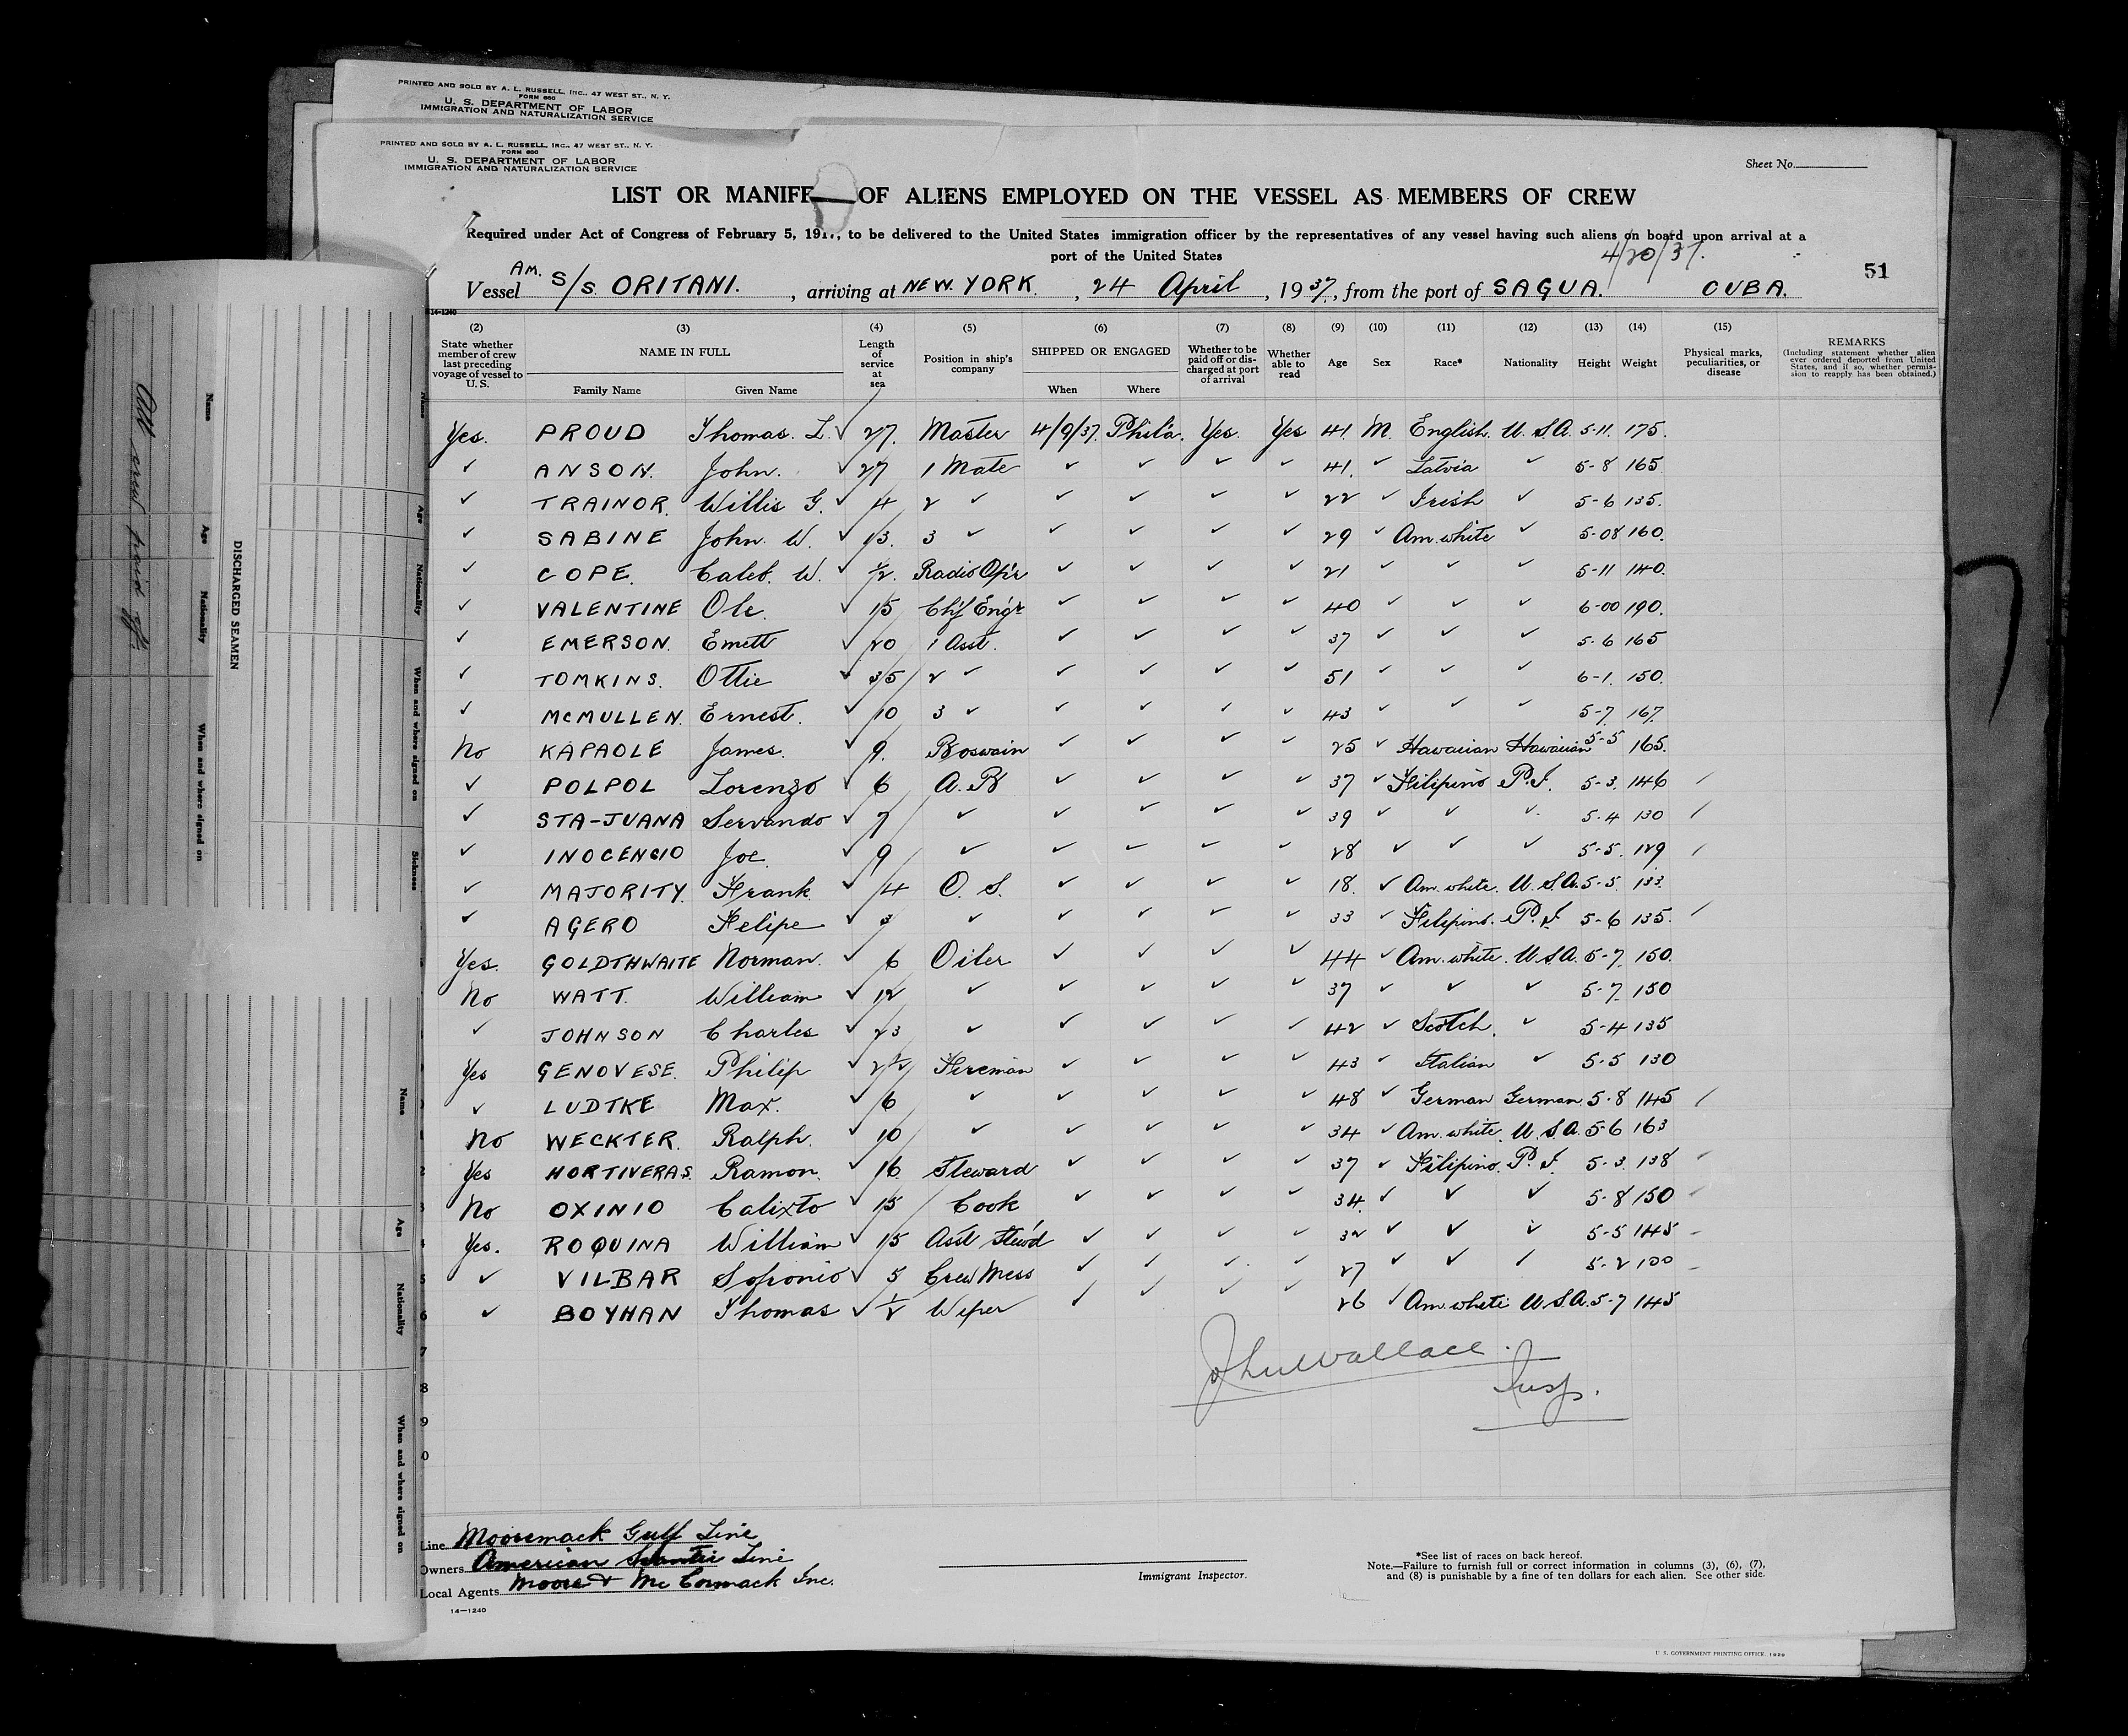 PRINTED AND SOLD BY A. L. RUSSELL, INC., 47 WEST ST., N. Y.
FORM 680
U. S. DEPARTMENT OF LABOR
IMMIGRATION AND NATURALIZATION SERVICE
PRINTED AND SOLD BY A. L. RUSSELL, INC., 47 WEST ST., N. Y.
FORM 680
U. S. DEPARTMENT OF LABOR
IMMIGRATION AND NATURALIZATION SERVICE
Sheet No.
LIST OR MANIF OF ALIENS EMPLOYED ON THE VESSEL AS MEMBERS OF CREW
Required under Act of Congress of February 5, 1917, to be delivered to the United States immigration officer by the representatives of any vessel having such aliens on board upon arrival at a
port of the United States
4/20/37.
51
Vessel Am. S/S. ORITANI. , arriving at NEW YORK. , 24 April , 1937, from the port of SAGUA. CUBA.
14-1240
(2) (3) (4) (5) (6) (7) (8) (9) (10) (11) (12) (13) (14) (15)
State whether member of crew last preceding voyage of vessel to U. S. NAME IN FULL Family Name Given Name Length of service at sea Position in ship's company SHIPPED OR ENGAGED When Where Whether to be paid off or discharged at port of arrival Whether able to read Age Sex Race* Nationality Height Weight Physical marks, peculiarities, or disease REMARKS (Including statement whether alien ever ordered deported from United States, and if so, whether permission to reapply has been obtained.)
Yes. PROUD Thomas. L. ✓ 27. Master 4/9/37. Phila. Yes. Yes 41. M. English. U.S.A. 5-11. 175.
✓ ANSON. John. ✓ 27 1 Mate ✓ ✓ ✓ ✓ 41. ✓ Latvia ✓ 5-8 165.
✓ TRAINOR. Willis G. ✓ 4 2 ✓ ✓ ✓ ✓ ✓ 22 ✓ Irish ✓ 5-6 135.
✓ SABINE John. W. ✓ 13. 3 ✓ ✓ ✓ ✓ ✓ 29 ✓ Am. white ✓ 5-08 160.
✓ COPE. Caleb. W. ✓ 1/2. Radio Op'r ✓ ✓ ✓ ✓ 21 ✓ ✓ ✓ 5-11 140.
✓ VALENTINE Ole. ✓ 15 Chf Eng'r ✓ ✓ ✓ ✓ 40 ✓ ✓ ✓ 6-00 190.
✓ EMERSON. Emett ✓ 20 1 Asst. ✓ ✓ ✓ ✓ 37 ✓ ✓ ✓ 5-6 165
✓ TOMKINS. Ottie ✓ 35 2 ✓ ✓ ✓ ✓ ✓ 51 ✓ ✓ ✓ 6-1. 150.
✓ McMULLEN. Ernest. ✓ 10 3 ✓ ✓ ✓ ✓ ✓ 43 ✓ ✓ ✓ 5-7 167.
No KAPAOLE James. ✓ 9. Boswain ✓ ✓ ✓ ✓ 25 ✓ Hawaiian Hawaiian 5-5 165.
✓ POLPOL Lorenzo ✓ 6 A. B ✓ ✓ ✓ ✓ 37 ✓ Filipino P.I. 5-3. 146 /
✓ STA-JUANA Servando ✓ 7 ✓ ✓ ✓ ✓ ✓ 39 ✓ ✓ ✓ 5-4 130 /
✓ INOCENCIO Joe. ✓ 9 ✓ ✓ ✓ ✓ ✓ 28 ✓ ✓ ✓ 5-5. 129 /
✓ MAJORITY. Frank. ✓ 4 O. S. ✓ ✓ ✓ ✓ 18. ✓ Am. white. U.S.A. 5-5. 133.
✓ AGERO Felipe ✓ 3 ✓ ✓ ✓ ✓ ✓ 33 ✓ Filipino. P.I 5-6 135. /
Yes. GOLDTHWAITE Norman. ✓ 6 Oiler ✓ ✓ ✓ ✓ 44 ✓ Am. white. U.S.A. 5-7. 150.
No WATT. William ✓ 12 ✓ ✓ ✓ ✓ ✓ 37 ✓ ✓ ✓ 5-7. 150
✓ JOHNSON Charles ✓ 23 ✓ ✓ ✓ ✓ ✓ 42 ✓ Scotch. ✓ 5-4 135
Yes GENOVESE. Philip ✓ 2 1/2 Fireman ✓ ✓ ✓ ✓ 43 ✓ Italian ✓ 5-5 130
✓ LUDTKE Max. ✓ 6 ✓ ✓ ✓ ✓ ✓ 48 ✓ German German. 5-8 145 /
No WECKTER. Ralph. ✓ 10 ✓ ✓ ✓ ✓ ✓ 34 ✓ Am. white. U.S.A. 5-6 163
Yes HORTIVERAS. Ramon. ✓ 16 Steward ✓ ✓ ✓ ✓ 37 ✓ Filipino. P.I. 5-3. 138
No OXINIO Calixto ✓ 15 Cook ✓ ✓ ✓ ✓ 34. ✓ ✓ ✓ 5-8 150
Yes. ROQUINA William ✓ 15 Asst Stew'd ✓ ✓ ✓ ✓ 32 ✓ ✓ ✓ 5-5 145
✓ VILBAR Sofronio ✓ 5 Crew Mess ✓ ✓ ✓ ✓ 27 ✓ ✓ ✓ 5-2 100
✓ BOYHAN Thomas ✓ 1/2 Wiper ✓ ✓ ✓ ✓ 26 ✓ Am. white U.S.A. 5-7 145
John Wallace.
Insp.
Line Mooremack Gulf Line
Owners American Scantic Line
Local Agents Moore & Mc Cormack Inc.
14-1240
Immigrant Inspector.
*See list of races on back hereof.
Note.—Failure to furnish full or correct information in columns (3), (6), (7),
and (8) is punishable by a fine of ten dollars for each alien. See other side.
U. S. GOVERNMENT PRINTING OFFICE. 1929
DISCHARGED SEAMEN
Name Age Nationality When and where signed on
All crew paid off.
Name Age Nationality When and where signed on Sickness
Name Age Nationality When and where signed on